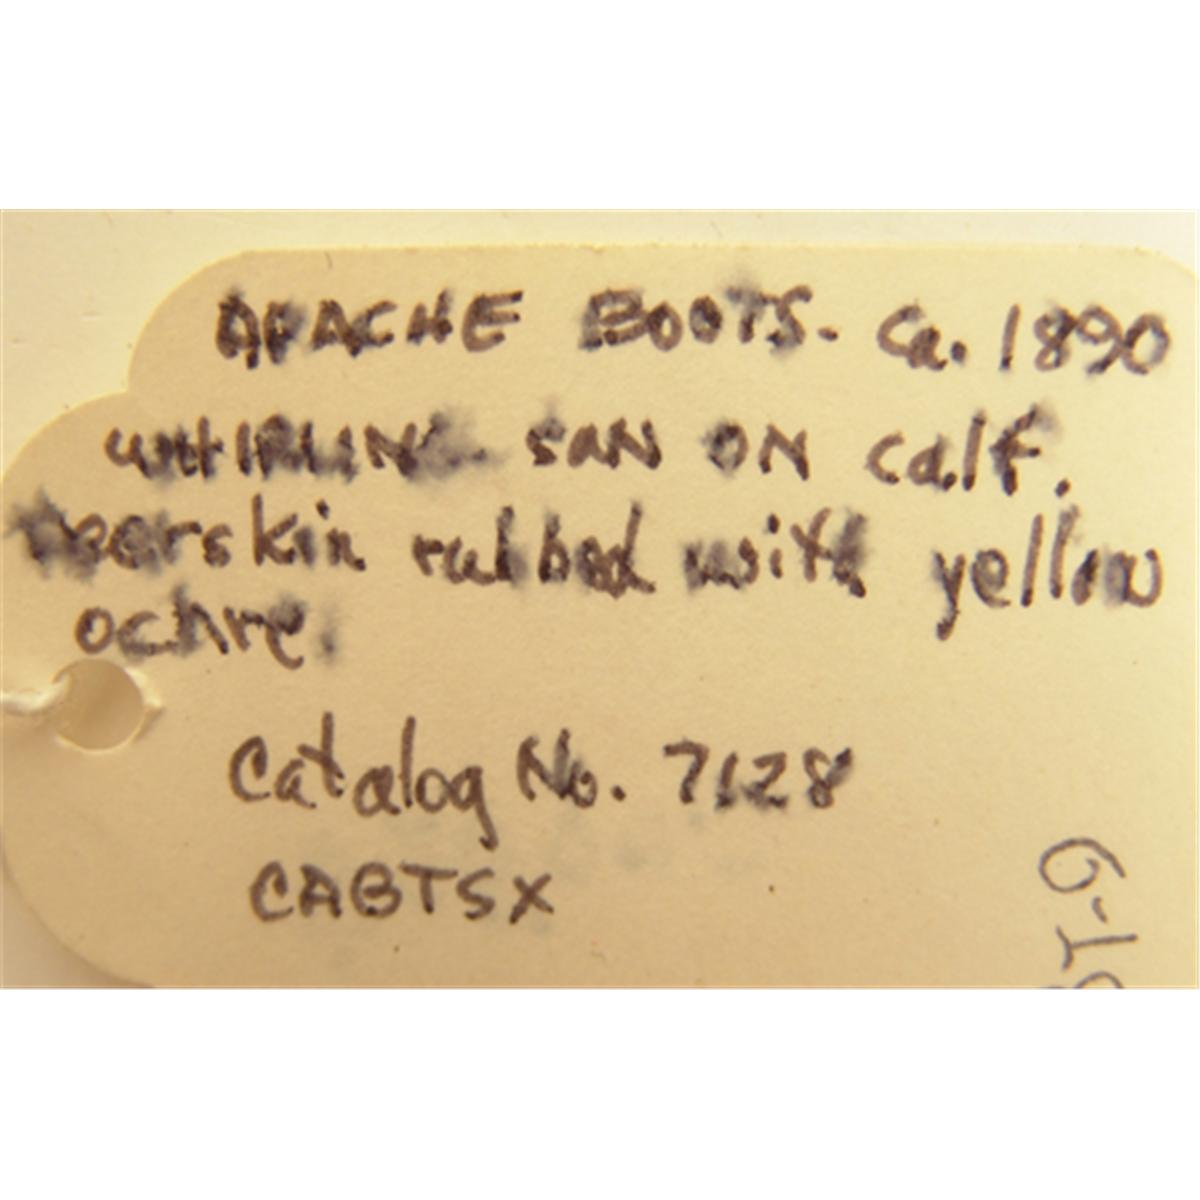 APACHE BOOTS. Ca. 1890
WHIRLING SUN ON Calf.
Deerskin rubbed with yellow
ochre.
Catalog No. 7128
CABTSX